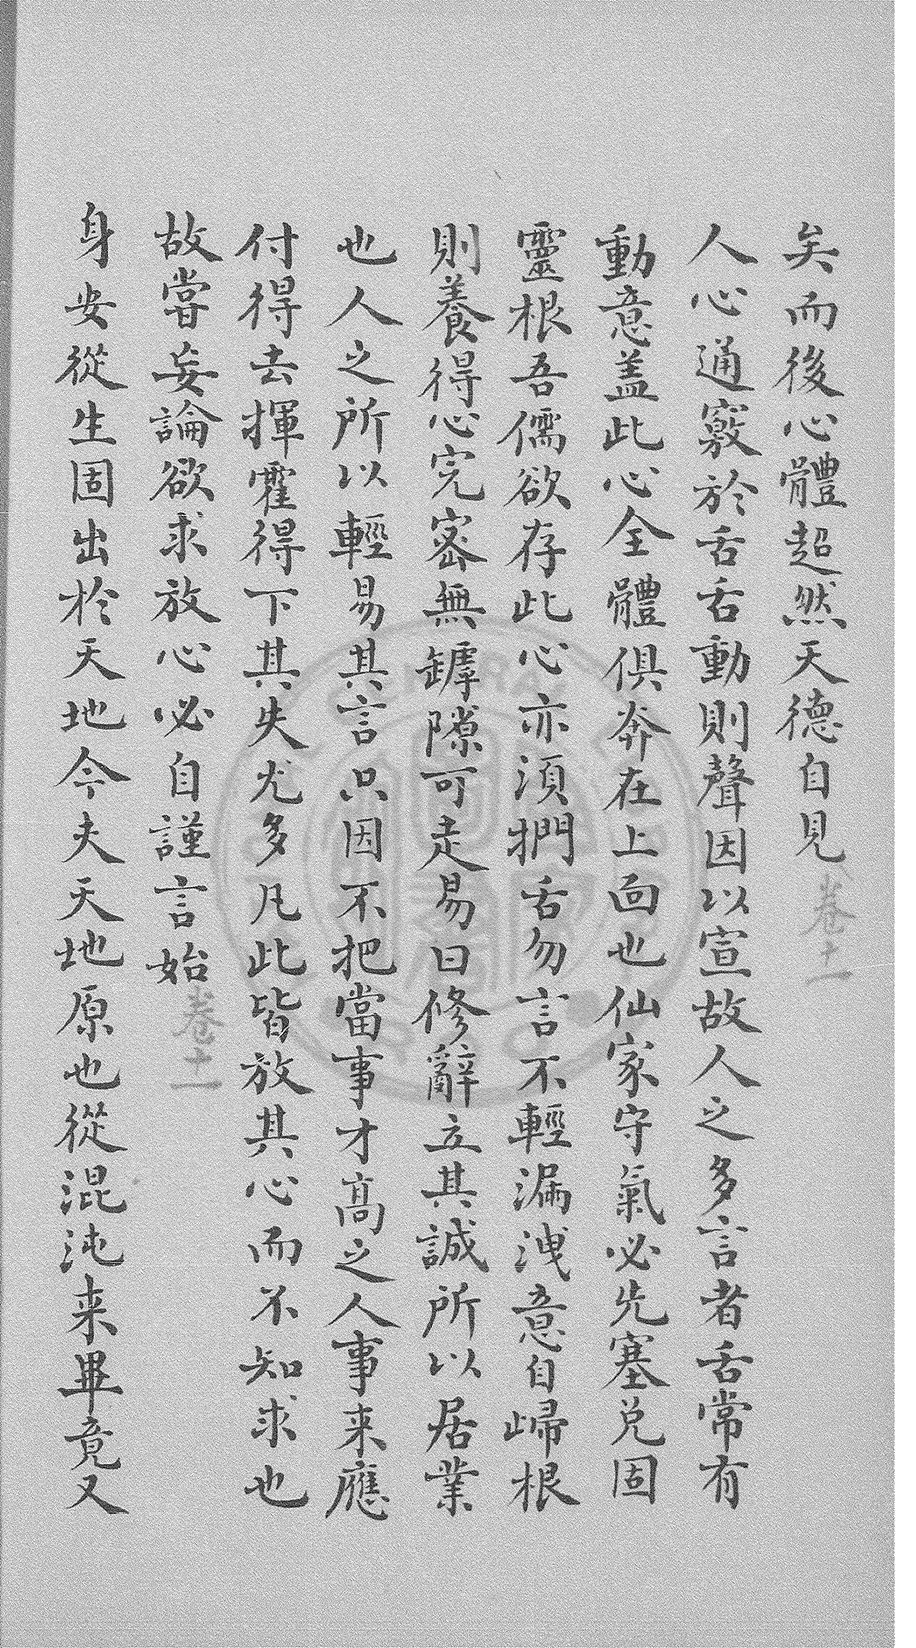 矣而後心體超然天德自見卷十一
人心通竅於舌舌動則聲因以宣故人之多言者舌常有
動意盖此心全體俱奔在上面也仙家守氣必先塞兌固
靈根吾儒欲存此心亦須捫舌勿言不輕漏洩意自歸根
則養得心完密無罅隙可走易曰修辭立其誠所以居業
也人之所以輕易其言只因不把當事才高之人事来應
付得去揮霍得下其失尤多凡此皆放其心而不知求也
故嘗妄論欲求放心必自謹言始卷十一
身安從生固出於天地今夫天地原也從混沌来畢竟又